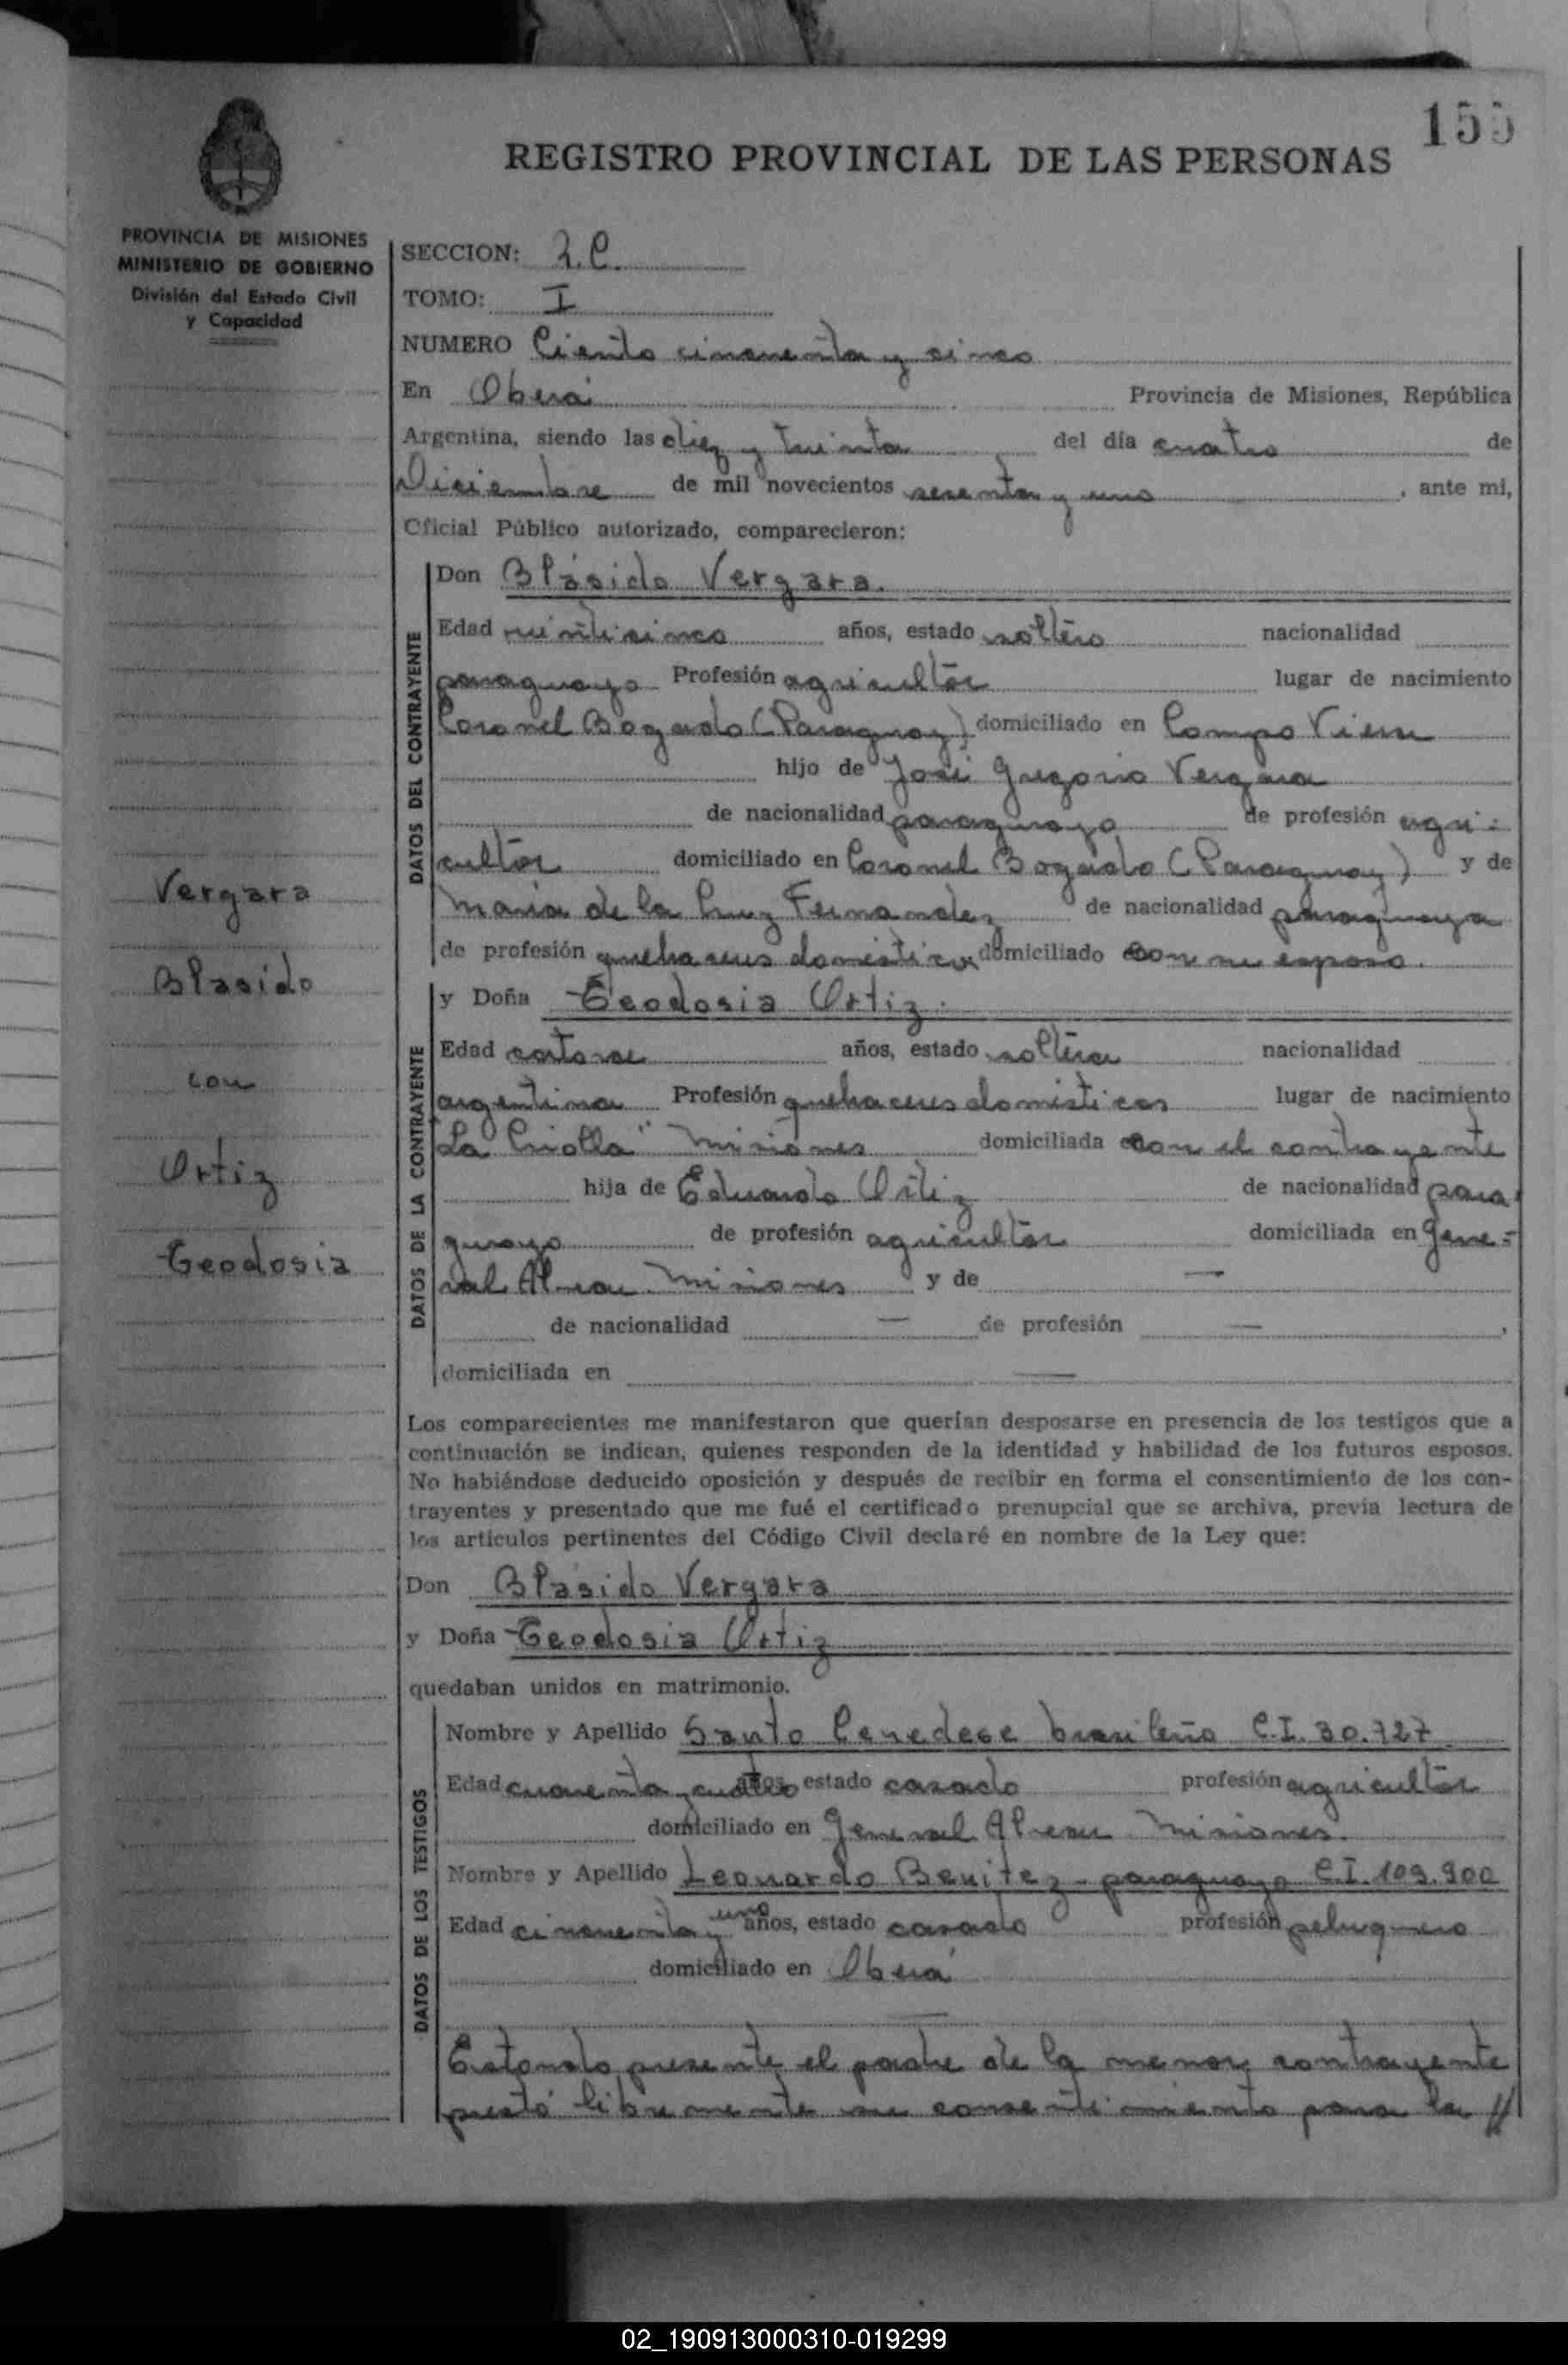 155
REGISTRO PROVINCIAL DE LAS PERSONAS
PROVINCIA DE MISIONES
MINISTERIO DE GOBIERNO
División del Estado Civil
y Capacidad
SECCION: 2.C.
TOMO: I
NUMERO Ciento cincuenta y cinco
En Oberá Provincia de Misiones, República
Argentina, siendo las diez y treinta del día cuatro de
Diciembre de mil novecientos sesenta y uno, ante mi,
Oficial Público autorizado, comparecieron:
DATOS DEL CONTRAYENTE
Don Blásido Vergara.
Edad veinticinco años, estado soltero nacionalidad
paraguayo Profesión agricultor lugar de nacimiento
Coronel Bogado (Paraguay) domiciliado en Campo Viera
hijo de José Gregorio Vergara
de nacionalidad paraguayo de profesión agri-
cultor domiciliado en Coronel Bogado (Paraguay) y de
María de la Cruz Fernandez de nacionalidad paraguaya
de profesión quehaceres domésticos domiciliado con su esposo.
DATOS DE LA CONTRAYENTE
y Doña Teodosia Ortiz.
Edad catorce años, estado soltera nacionalidad
argentina Profesión quehaceres domésticos lugar de nacimiento
"La Criolla" Misiones domiciliada con el contrayente
hija de Eduardo Ortiz de nacionalidad para-
guayo de profesión agricultor domiciliada en Gene-
ral Alvear Misiones y de —
de nacionalidad — de profesión —,
domiciliada en —
Los comparecientes me manifestaron que querían desposarse en presencia de los testigos que a
continuación se indican, quienes responden de la identidad y habilidad de los futuros esposos.
No habiéndose deducido oposición y después de recibir en forma el consentimiento de los con-
trayentes y presentado que me fué el certificado prenupcial que se archiva, previa lectura de
los artículos pertinentes del Código Civil declaré en nombre de la Ley que:
Don Blásido Vergara
y Doña Teodosia Ortiz
quedaban unidos en matrimonio.
DATOS DE LOS TESTIGOS
Nombre y Apellido Santo Cenedese brasileño C.I. 30.727
Edad cuarenta y cuatro años, estado casado profesión agricultor
domiciliado en General Alvear Misiones.
Nombre y Apellido Leonardo Benitez - paraguayo C.I. 109.900
Edad cincuenta y uno años, estado casado profesión peluquero
domiciliado en Oberá
Estando presente el padre de la menor contrayente
prestó libremente su consentimiento para la //
Vergara
Blasido
con
Ortiz
Teodosia
02_190913000310-019299